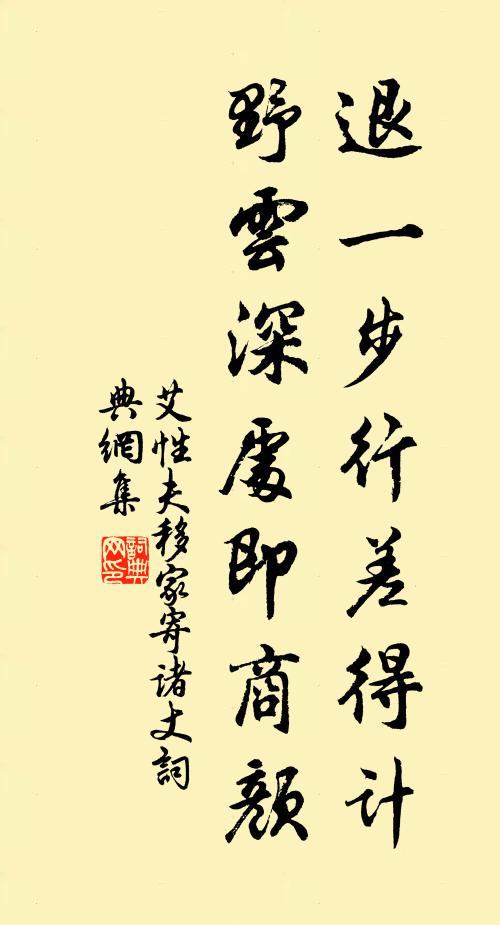 退一步行差得计
野雲深處即商顏
艾性夫移家寄诸丈詞
典網集
詞典网印